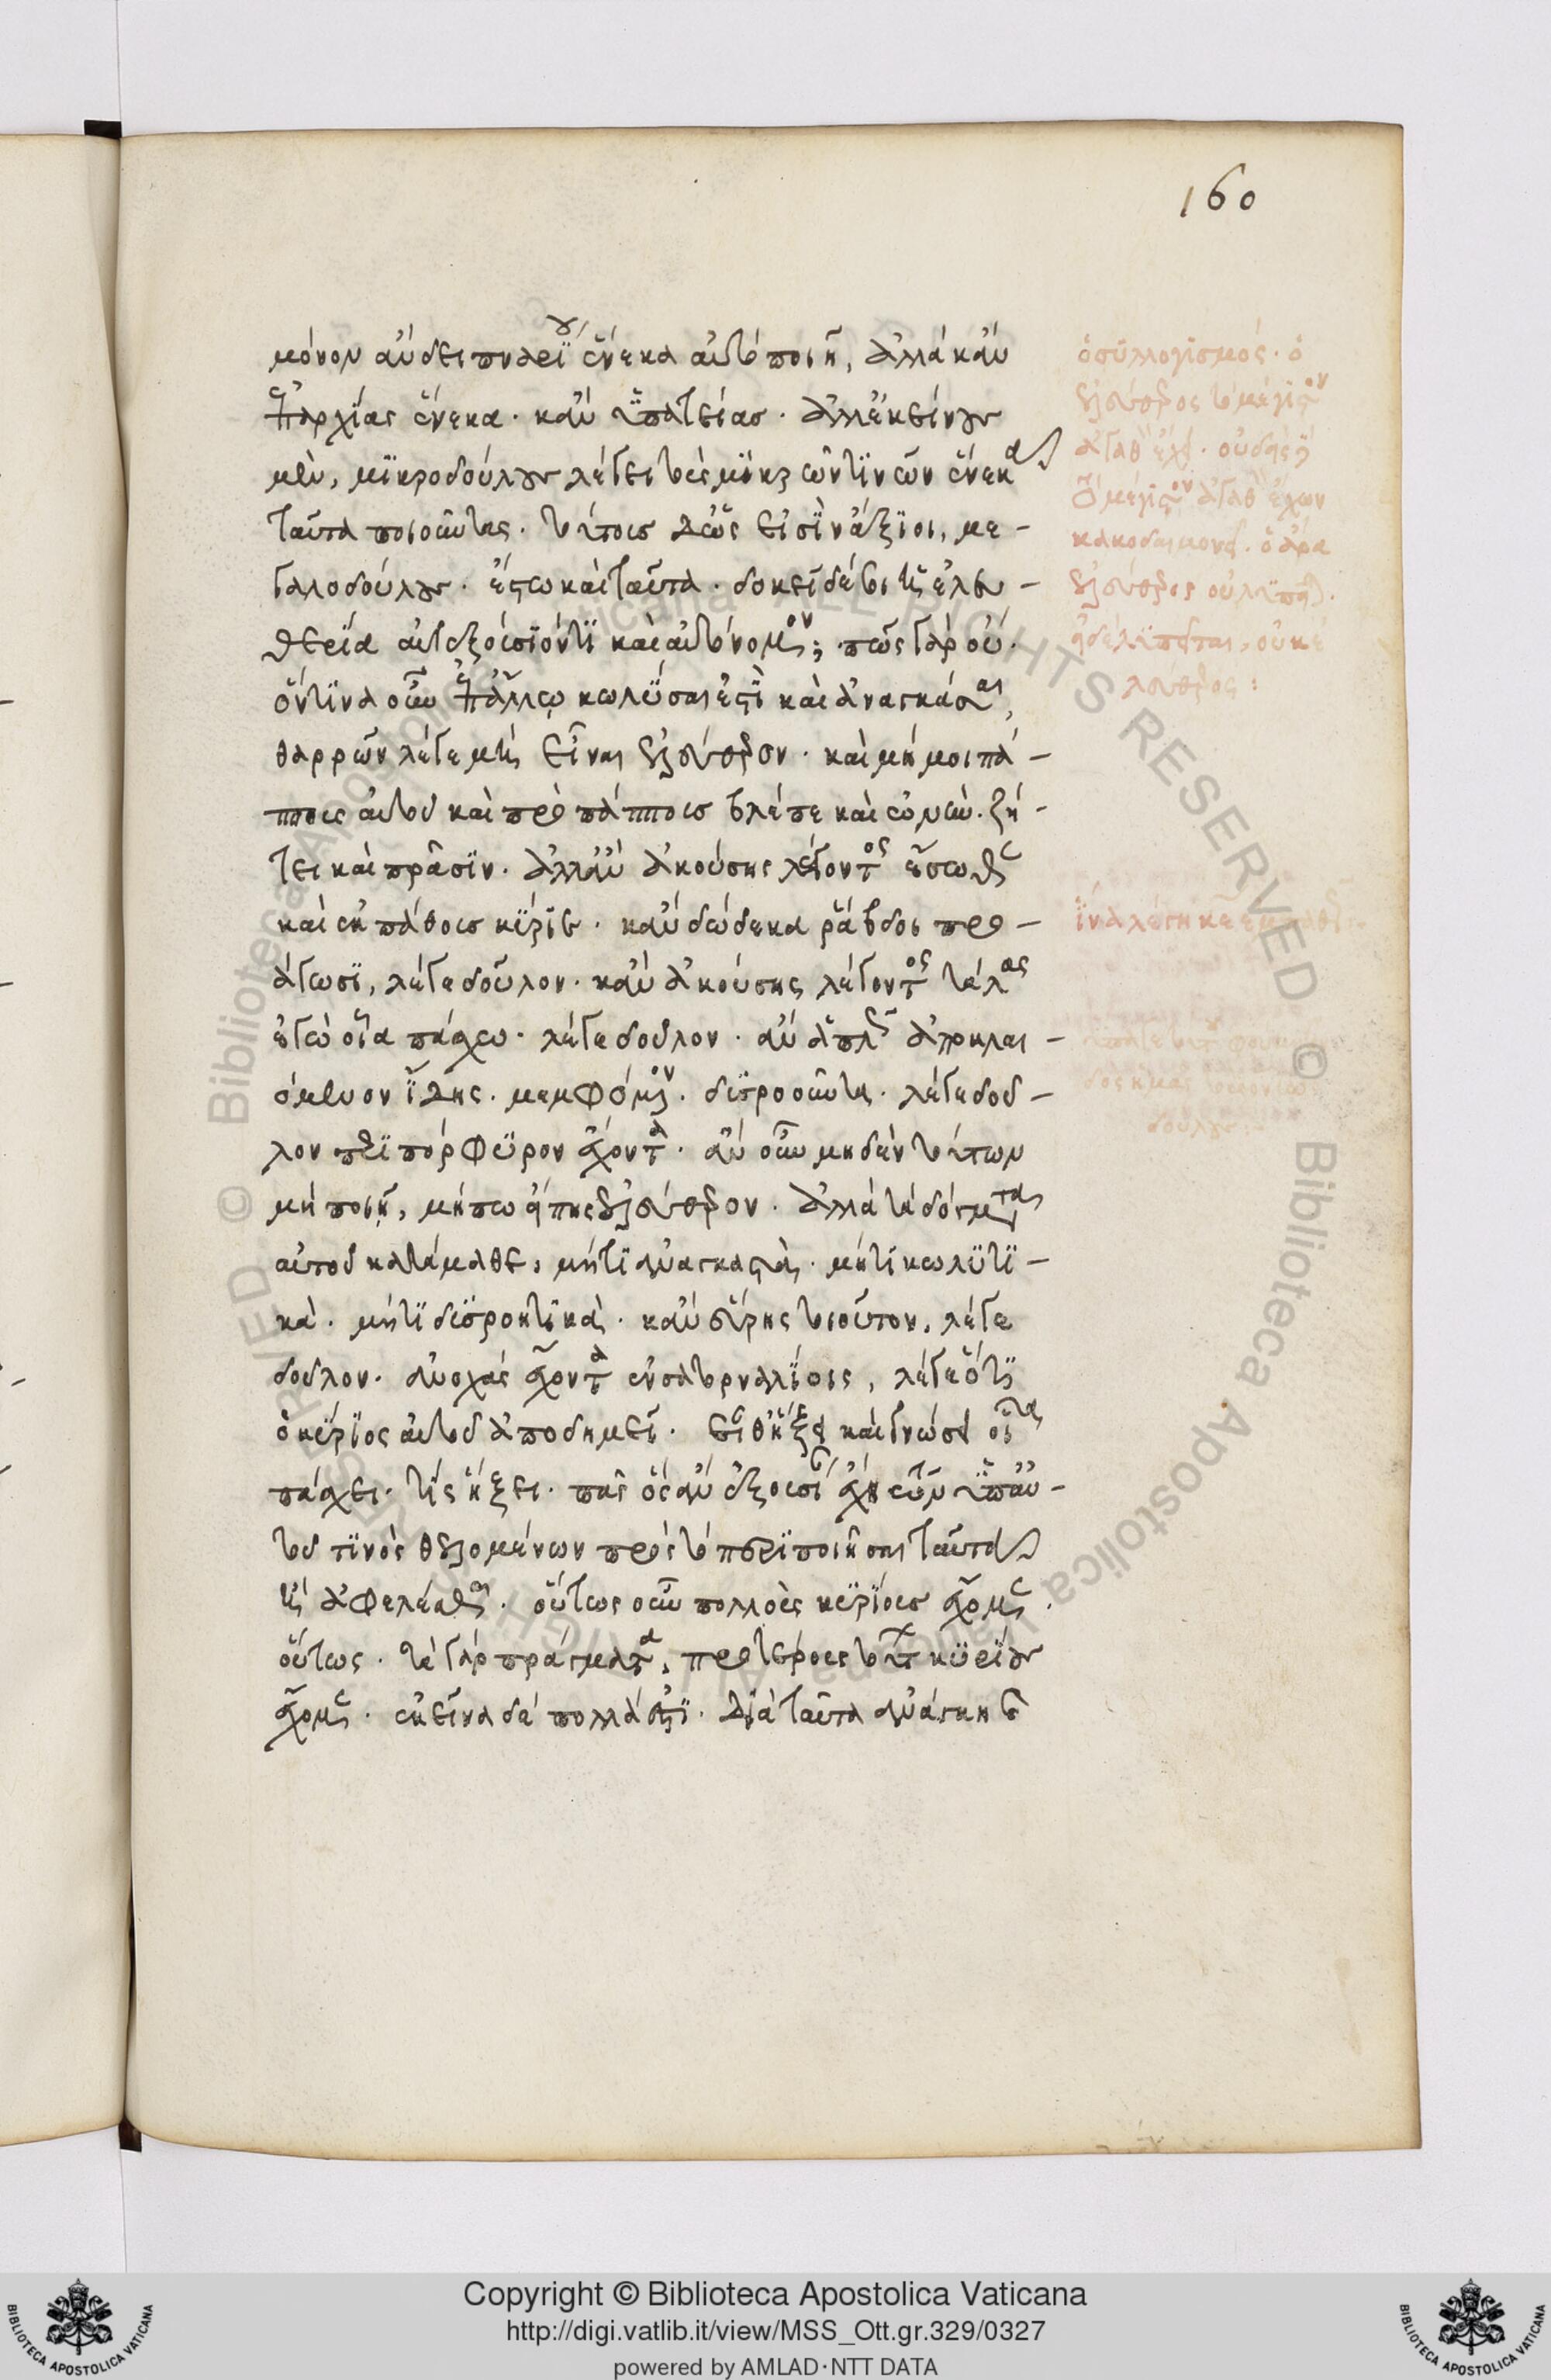 160
μόνον ἂν δειπναρίου ἕνεκα αὐτὸ ποιῇ, ἀλλὰ κἂν
ἐπαρχίας ἕνεκα· κἂν ὑπατείας· ἀλλ' ἐκείνους
μὲν, μικροδούλους λέγε τοὺς μικρῶν τινῶν ἕνεκα
ταῦτα ποιοῦντας· τούτους δ' ὡς εἰσὶν ἄξιοι, με-
γαλοδούλους· ἔστω καὶ ταῦτα· δοκεῖ δέ σοι ἡ ἐλευ-
θερία αὐτεξούσιόν τι καὶ αὐτόνομον; πῶς γὰρ οὔ·
ὅντινα οὖν ἐπ' ἄλλῳ κωλῦσαι ἐστὶ καὶ ἀναγκάσαι,
θαρρῶν λέγε μὴ εἶναι ἐλεύθερον· καὶ μή μοι πά-
ππους αὐτοῦ καὶ προπάππους βλέπε καὶ ὠνήν· ζή-
τει καὶ πρᾶσιν· ἀλλ' ἂν ἀκούσῃς λέγοντος ἔσωθεν
καὶ ἐκ πάθους κύριε· κἂν δώδεκα ῥάβδοι προ-
άγωσι, λέγε δοῦλον· κἂν ἀκούσῃς λέγοντος τάλας
ἐγὼ οἷα πάσχω· λέγε δοῦλον· ἂν ἁπλῶς ἀποκλαι-
όμενον ἴδῃς· μεμφόμενον· δυσροοῦντα· λέγε δοῦ-
λον περιπόρφυρον ἔχοντα· ἂν οὖν μηδὲν τούτων
μὴ ποιῇ, μήπω εἴπῃς ἐλεύθερον· ἀλλὰ τὰ δόγματα
αὐτοῦ κατάμαθε, μή τι ἀναγκαστά· μή τι κωλυτι-
κά· μή τι δυσροητικά· κἂν εὕρῃς τοιοῦτον, λέγε
δοῦλον· ἀνοχὰς ἔχοντα ἐν σατορναλίοις, λέγε ὅτι
ὁ κύριος αὐτοῦ ἀποδημεῖ· εἶθ' ἥξει καὶ γνώσει οἷα
πάσχει· τίς ἥξει· πᾶς ὃς ἂν ἐξουσίαν ἔχῃ τῶν ὑπ' αὐ-
τοῦ τινὸς θελομένων πρὸς τὸ περιποιῆσαι ταῦτα
ἢ ἀφελέσθαι· οὕτως οὖν πολλοὺς κυρίους ἔχομεν·
οὕτως· τὰ γὰρ πράγματα, προτέρους τούτων κυρίους
ἔχομεν· ἐκεῖνα δὲ πολλά ἐστι· διὰ ταῦτα ἀνάγκη
ὁ συλλογισμός· ὁ
ἐλεύθερος τὸ μέγιστον
ἀγαθὸν ἔχει· οὐδεὶς
τὸ μέγιστον ἀγαθὸν ἔχων
κακοδαιμονεῖ· ὁ ἄρα
ἐλεύθερος οὐ λυπεῖται·
εἰ δὲ λυπεῖται, οὐκ ἐ
λεύθερος:
ἵνα λέγῃ κύριε
Copyright © Biblioteca Apostolica Vaticana
http://digi.vatlib.it/view/MSS_Ott.gr.329/0327
powered by AMLAD·NTT DATA